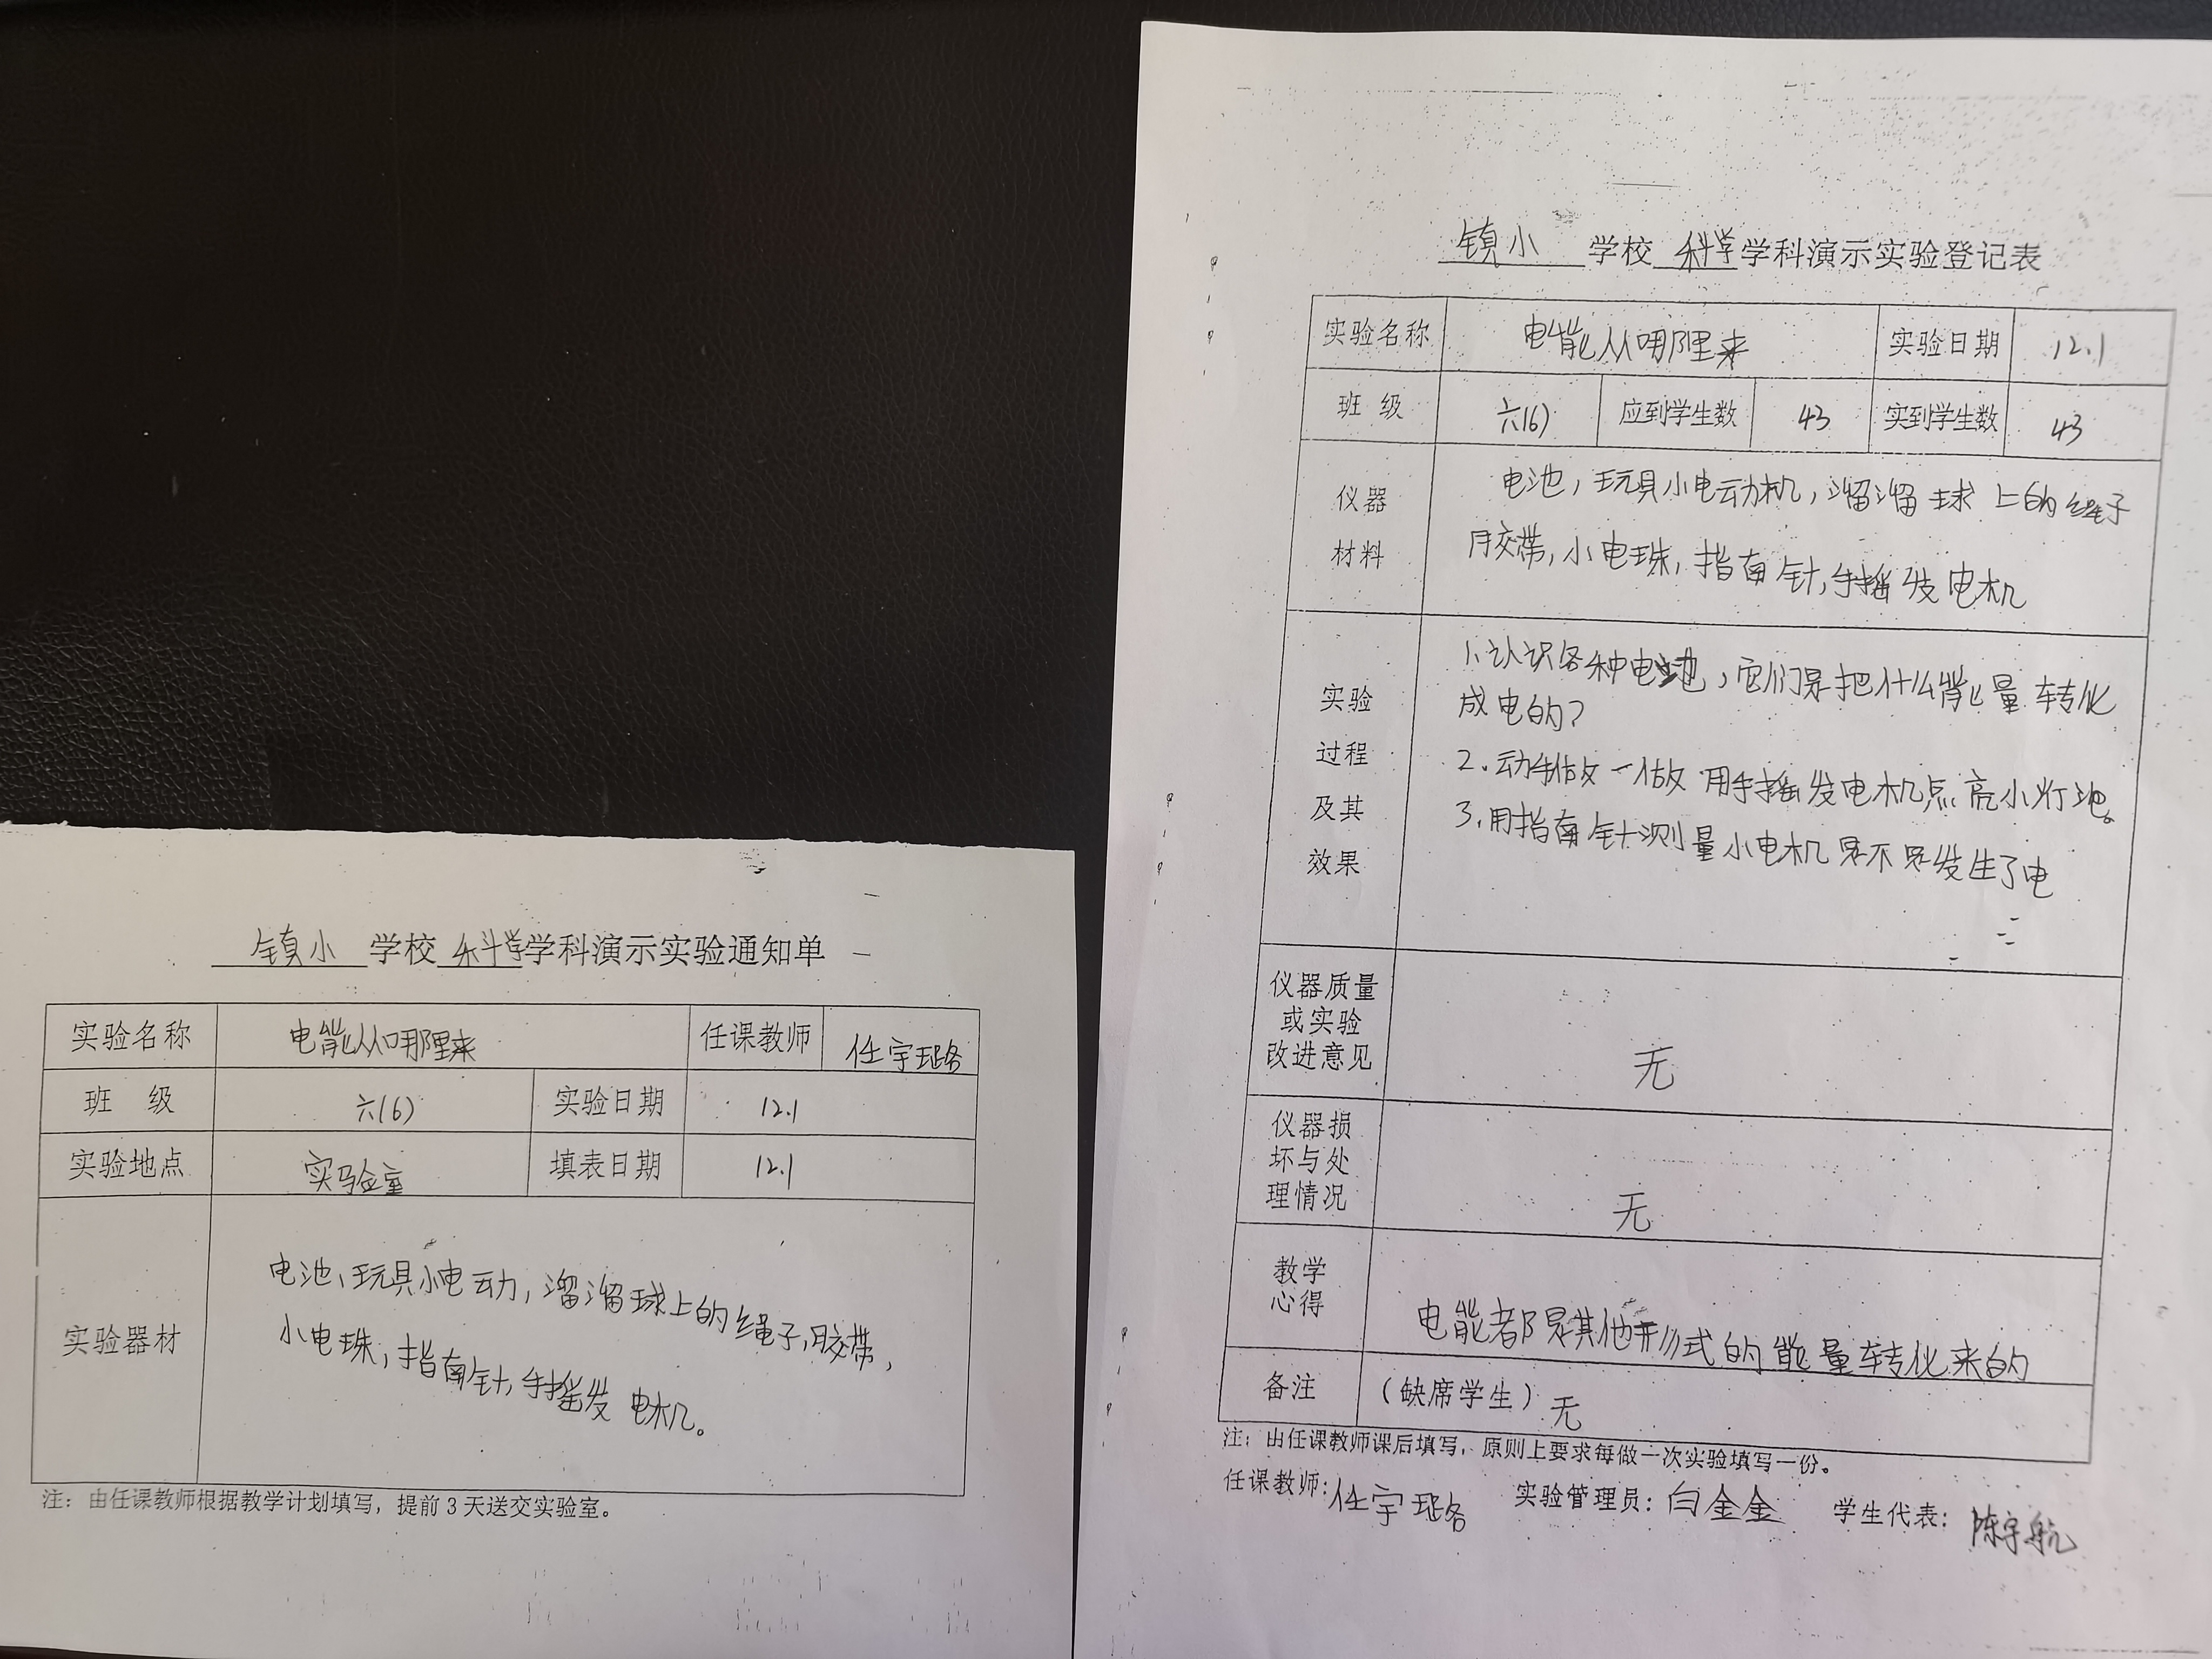 镇小 学校 科学 学科演示实验通知单
实验名称 电能从哪里来 任课教师 任宇珞
班 级 六(6) 实验日期 12.1
实验地点 实验室 填表日期 12.1
实验器材
电池、玩具小电动,溜溜球上的绳子,胶带,
小电珠,指南针,手摇发电机。
注:由任课教师根据教学计划填写,提前3天送交实验室。
镇小 学校 科学 学科演示实验登记表
实验名称 电能从哪里来 实验日期 12.1
班 级 六(6) 应到学生数 43 实到学生数 43
仪器
材料
电池,玩具小电动机,溜溜球上的绳子
胶带,小电珠,指南针,手摇发电机
实验
过程
及其
效果
1、认识各种电池,它们是把什么能量转化
成电的?
2.动手做一做 用手摇发电机点亮小灯池。
3.用指南针测量小电机是不是发生了电
仪器质量
或实验
改进意见
无
仪器损
坏与处
理情况
无
教学
心得
电能都是其他形式的能量转化来的
备注 (缺席学生) 无
注:由任课教师课后填写,原则上要求每做一次实验填写一份。
任课教师:任宇珞 实验管理员:白金金 学生代表:陈宇航